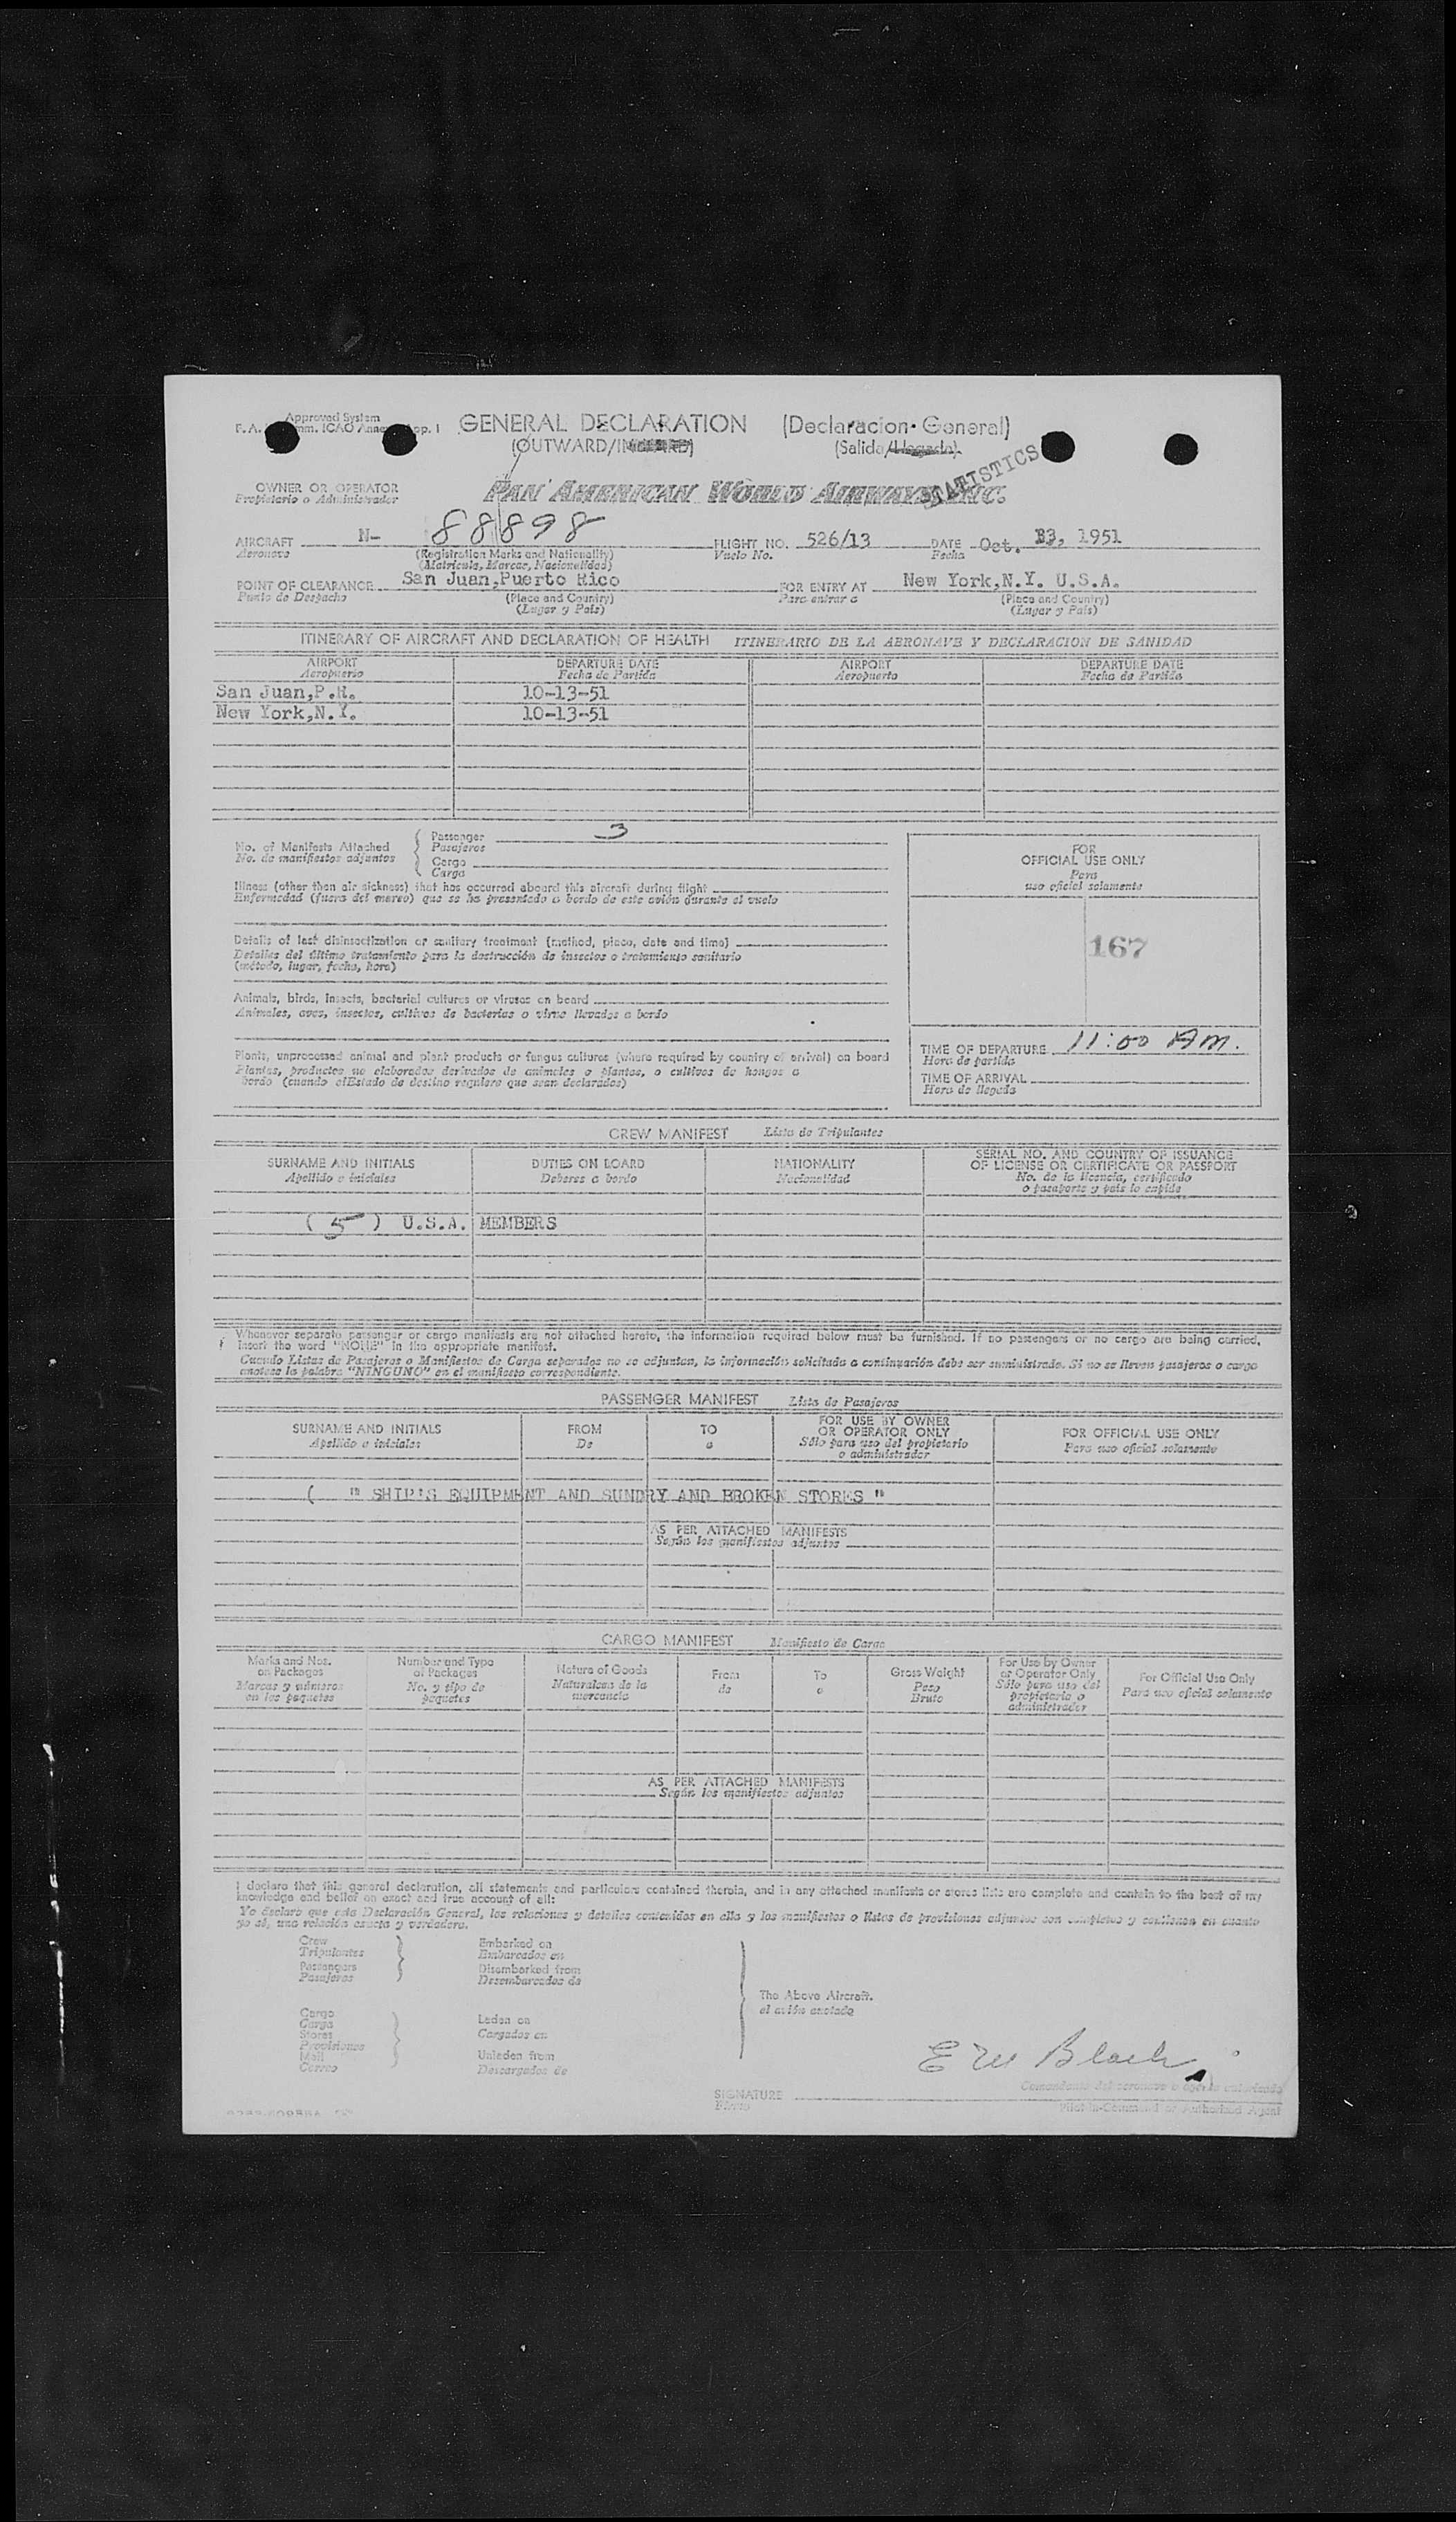 Approved System
GENERAL DECLARATION (Declaracion General)
(OUTWARD/INWARD) (Salida/Llegada)
STATISTICS
OWNER OR OPERATOR
Propietario o Administrador
PAN AMERICAN WORLD AIRWAYS, INC.
AIRCRAFT N- 88898 FLIGHT NO. 526/13 DATE Oct. 13, 1951
Aeronave (Registration Marks and Nationality) Vuelo No. Fecha
(Matricula, Marcas, Nacionalidad)
POINT OF CLEARANCE San Juan,Puerto Rico FOR ENTRY AT New York,N.Y. U.S.A.
Punto de Despacho (Place and Country) Para entrar a (Place and Country)
(Lugar y País) (Lugar y País)
ITINERARY OF AIRCRAFT AND DECLARATION OF HEALTH ITINERARIO DE LA AERONAVE Y DECLARACION DE SANIDAD
AIRPORT DEPARTURE DATE AIRPORT DEPARTURE DATE
Aeropuerto Fecha de Partida Aeropuerto Fecha de Partida
San Juan,P.R. 10-13-51
New York,N.Y. 10-13-51
Passenger 3
No. of Manifests Attached Pasajeros
No. de manifiestos adjuntos Cargo
Carga
Illness (other than air sickness) that has occurred aboard this aircraft during flight
Enfermedad (fuera del mareo) que se ha presentado a bordo de este avión durante el vuelo
Details of last disinsectization or sanitary treatment (method, place, date and time)
Detalles del último tratamiento para la destrucción de insectos o tratamiento sanitario
(método, lugar, fecha, hora)
Animals, birds, insects, bacterial cultures or viruses on board
Animales, aves, insectos, cultivos de bacterias o virus llevados a bordo
Plants, unprocessed animal and plant products or fungus cultures (where required by country of arrival) on board
Plantas, productos no elaborados derivados de animales o plantas, o cultivos de hongos a
bordo (cuando el Estado de destino requiere que sean declarados)
FOR
OFFICIAL USE ONLY
Para
uso oficial solamente
167
TIME OF DEPARTURE 11:00 Am.
Hora de partida
TIME OF ARRIVAL
Hora de llegada
CREW MANIFEST Lista de Tripulantes
SURNAME AND INITIALS DUTIES ON BOARD NATIONALITY SERIAL NO. AND COUNTRY OF ISSUANCE
OF LICENSE OR CERTIFICATE OR PASSPORT
Apellido e iniciales Deberes a bordo Nacionalidad No. de la licencia, certificado
o pasaporte y país lo expide
( 5 ) U.S.A. MEMBERS
Whenever separate passenger or cargo manifests are not attached hereto, the information required below must be furnished. If no passengers or no cargo are being carried,
insert the word "NONE" in the appropriate manifest.
Cuando Listas de Pasajeros o Manifiestos de Carga separados no se adjuntan, la información solicitada a continuación debe ser suministrada. Si no se llevan pasajeros o cargo
anotese la palabra "NINGUNO" en el manifiesto correspondiente.
PASSENGER MANIFEST Lista de Pasajeros
SURNAME AND INITIALS FROM TO FOR USE BY OWNER FOR OFFICIAL USE ONLY
OR OPERATOR ONLY
Apellido e iniciales De a Sólo para uso del propietario Para uso oficial solamente
o administrador
( " SHIP'S EQUIPMENT AND SUNDRY AND BROKEN STORES "
AS PER ATTACHED MANIFESTS
Según los manifiestos adjuntos
CARGO MANIFEST Manifiesto de Carga
Marks and Nos. Number and Type Nature of Goods From To Gross Weight For Use by Owner For Official Use Only
on Packages of Packages or Operator Only
Marcas y números No. y tipo de Naturaleza de la de a Peso Sólo para uso del Para uso oficial solamente
en los paquetes paquetes mercancia Bruto propietario o
administrador
AS PER ATTACHED MANIFESTS
Según los manifiestos adjuntos
I declare that this general declaration, all statements and particulars contained therein, and in any attached manifests or stores lists are complete and contain to the best of my
knowledge and belief an exact and true account of all:
Yo declaro que esta Declaración General, las relaciones y detalles contenidos en ella y los manifiestos o listas de provisiones adjuntos son completos y contienen en cuanto
yo sé, una relación exacta y verdadera.
Crew Embarked on
Tripulantes Embarcados en
Passengers Disembarked from
Pasajeros Desembarcados de
The Above Aircraft.
el avión anotado
Cargo Laden on
Carga Cargados en
Stores
Provisiones Unladen from
Mail Descargados de
Correo
E W Black
SIGNATURE
Firma
Comandante del aeronave o agente autorizado
Pilot-in-Command or Authorized Agent